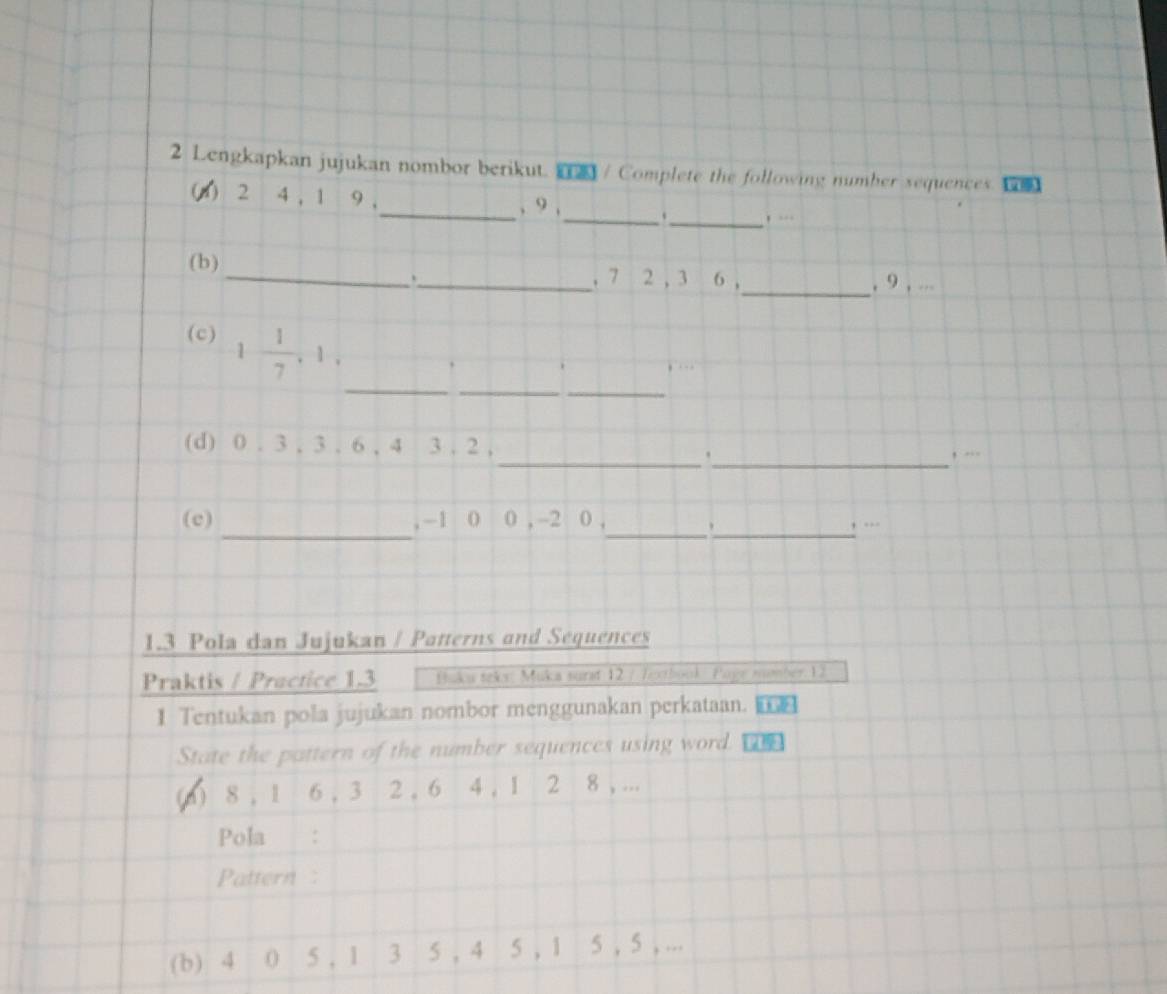 2 Lengkapkan jujukan nombor berikut. TP 3 / Complete the following number sequences. PL 3
(a) 2 4 , 1 9 , ________ , 9 , ________ , ________ , ...
(b) ________ , ________ , 7 2 , 3 6 , ________ , 9 , ...
(c) 1 1/7 , 1 , ________ , ________ , ________ , ...
(d) 0 . 3 , 3 . 6 , 4 3 . 2 , ________ , ________ , ...
(e) ________ , –1 0 0 , –2 0 , ________ , ________ , ...
1.3 Pola dan Jujukan / Patterns and Sequences
Praktis / Practice 1.3 Buku teks: Muka surat 12 / Textbook: Page number 12
1 Tentukan pola jujukan nombor menggunakan perkataan. TP 2
State the pattern of the number sequences using word. PL 2
(a) 8 , 1 6 , 3 2 , 6 4 , 1 2 8 , ...
Pola :
Pattern :
(b) 4 0 5 , 1 3 5 , 4 5 , 1 5 , 5 , ...